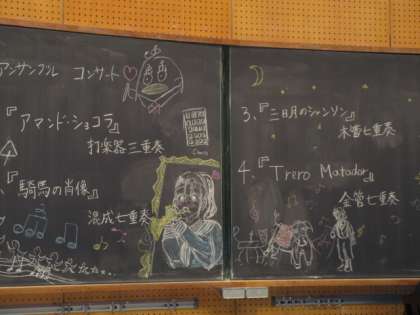 アンサンブル コンサート
『アマンド・ショコラ』
打楽器三重奏
Choco
『騎馬の肖像』
混成七重奏
3、『三日月のシャンソン』
木管七重奏
4、『Trero Matador』
金管七重奏